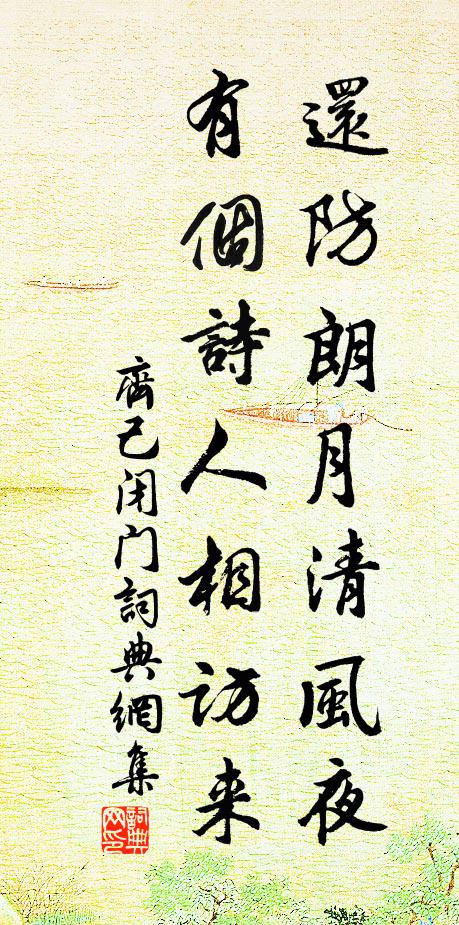 還防朗月清風夜
有個詩人相訪来
齊己闭门詞典網集
詞典
网印